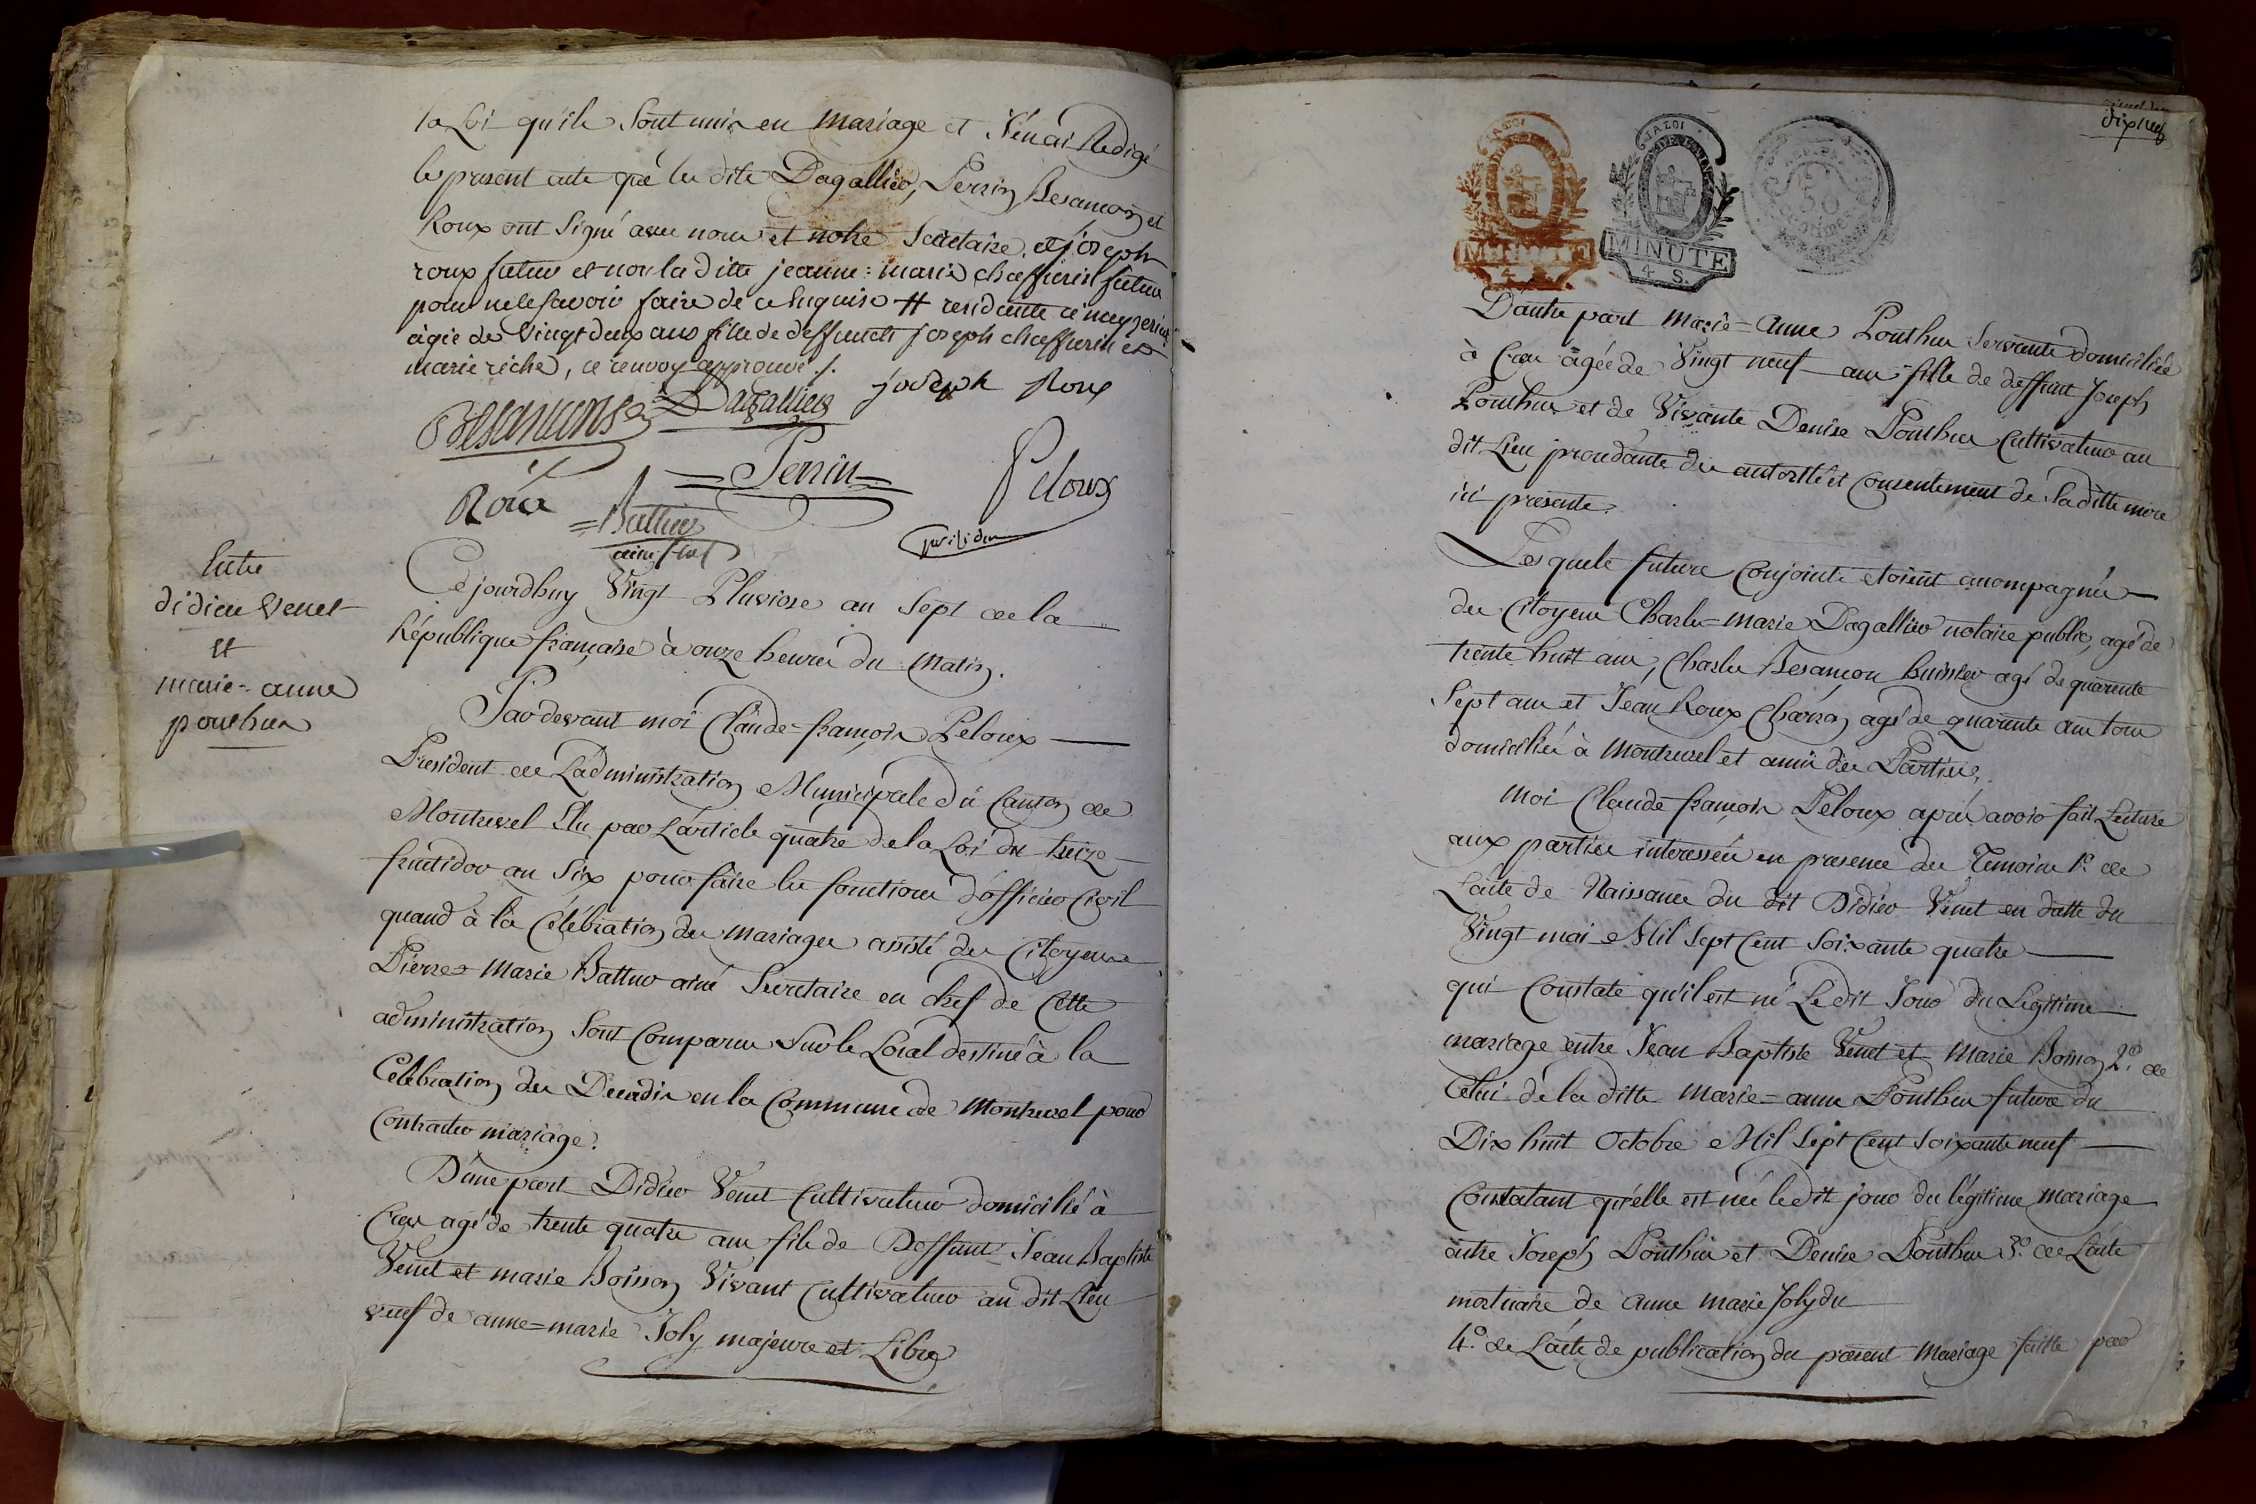 la Loi qu'ils Sont unis en mariage et J'en ai Redigé
le present acte que les dits Dagallier, Perrin Besançon et
Roux ont Signé avec nous et notre Secretaire, et joseph
roux futur et non la ditte jeanne = marie chaffurin future
pour ne le savoir faire de ce Enquise # residante à
agée de Vingt deux ans fille de deffunct joseph chaffurin et
marie riche, ce renvoy approuvé ./.
Besançon Dagallier joseph Roux
= Perrin = Peloux
Roux = Battur president
ainé
Entre
didier Venet
et
marie = anne
ponthus
Cejourdhuy Vingt Pluviose an Sept de la
République française à onze heures du Matin.
Pardevant moi Claude = françois Peloux
President de L'administration Municipale du Canton de
Montrevel Elu par L'article quatre de la Loi du treize
fructidor an Six pour faire les fonctions d'officier Civil
quand à la Célébration des mariages assisté du Citoyen
Pierre = Marie Battur ainé Secretaire en chef de Cette
administration Sont Comparus Sur le Local destiné à la
Célébration des Decadis en la Commune de Montrevel pour
Contracter mariage.
D'une part Didier Venet Cultivateur domicilié à
Cras agé de trente quatre ans fils de Deffunt Jean Baptiste
Venet et marie Boisson Vivant Cultivateur au dit Lieu
veuf de anne = marie Joly majeure et Libre
dix neuf
LA LOI
LA LOI
MINUTE
4 S.
MINUTE
4 S.
50
D'autre part Marie = anne Ponthus Servante domiciliée
à Cras agée de Vingt neuf ans fille de deffunt Joseph
Ponthus et de Vivante Denise Ponthus Cultivateur au
dit Lieu procedante de autorité et Consentement de Sa ditte mere
ici presente.
Lesquels futurs Conjoints etoient accompagnés
des Citoyens Charles = Marie Dagallier notaire public, agé de
trente huit ans, Charles Besançon huissier agé de quarente
Sept ans et Jean Roux Charron agé de quarente ans tous
domiciliés à Montrevel et amis des Parties.
Moi Claude françois Peloux après avoir fait Lecture
aux parties interessées en presence des Temoins 1.º de
L'acte de Naissance du dit Didier Venet en datte du
Vingt mai Mil Sept Cent Soixante quatre
qui Constate qu'il est né Le dit Jour du Légitime
mariage entre Jean Baptiste Venet et Marie Boisson 2.º de
Celui de la ditte Marie = anne Ponthus future du
Dix huit Octobre Mil Sept Cent Soixante neuf
Constatant qu'elle est née le dit jour du légitime mariage
entre Joseph Ponthus et Denise Ponthus 3.º de L'acte
mortuaire de anne marie Joly du
4.º de L'acte de publication du present Mariage faitte par